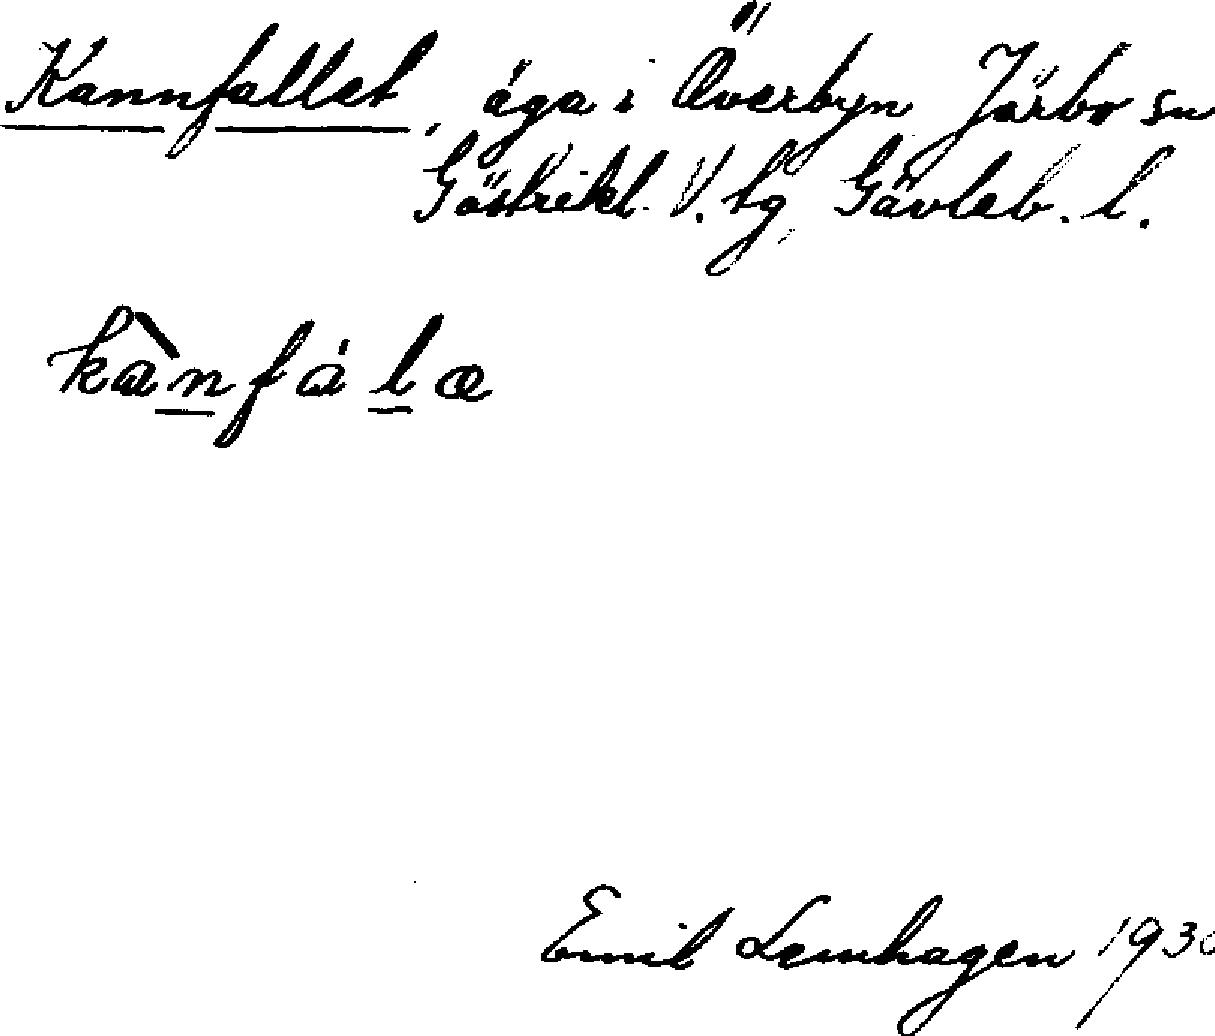 Kannfallet, äga i Överbyn Järbo sn
Gästrikl. V. tg, Gävleb. l.
kànfála
Emil Lemhagen 1930